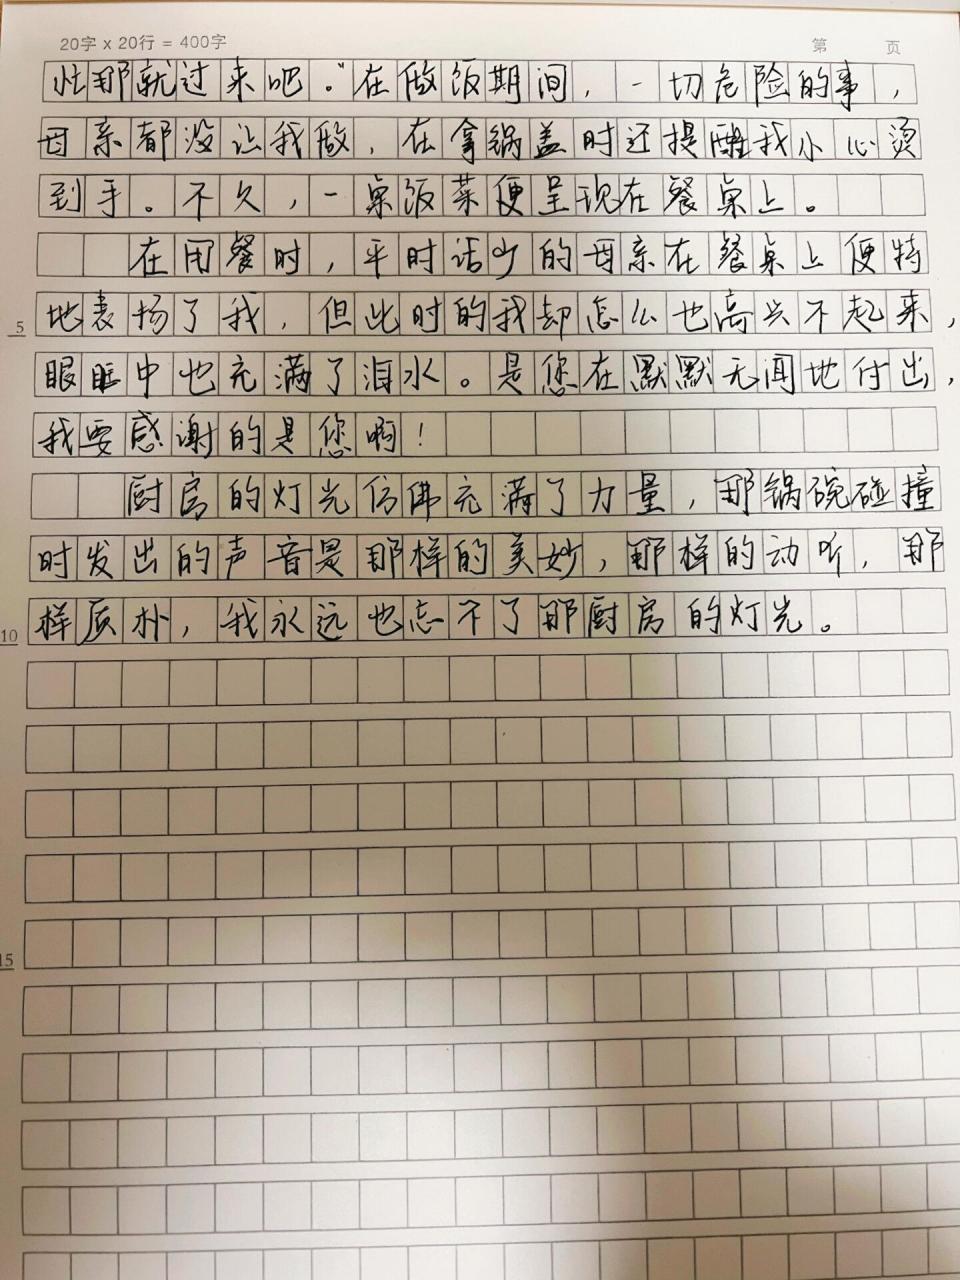 20字 x 20行 = 400字 第 页
忙那就过来吧。”在做饭期间，一切危险的事，
母亲都没让我做，在拿锅盖时还提醒我小心烫
到手。不久，一桌饭菜便呈现在餐桌上。
在用餐时，平时话少的母亲在餐桌上便特
5 地表扬了我，但此时的我却怎么也高兴不起来，
眼眶中也充满了泪水。是您在默默无闻地付出，
我要感谢的是您啊！
厨房的灯光仿佛充满了力量，那锅碗碰撞
时发出的声音是那样的美妙，那样的动听，那
10 样质朴，我永远也忘不了那厨房的灯光。
15